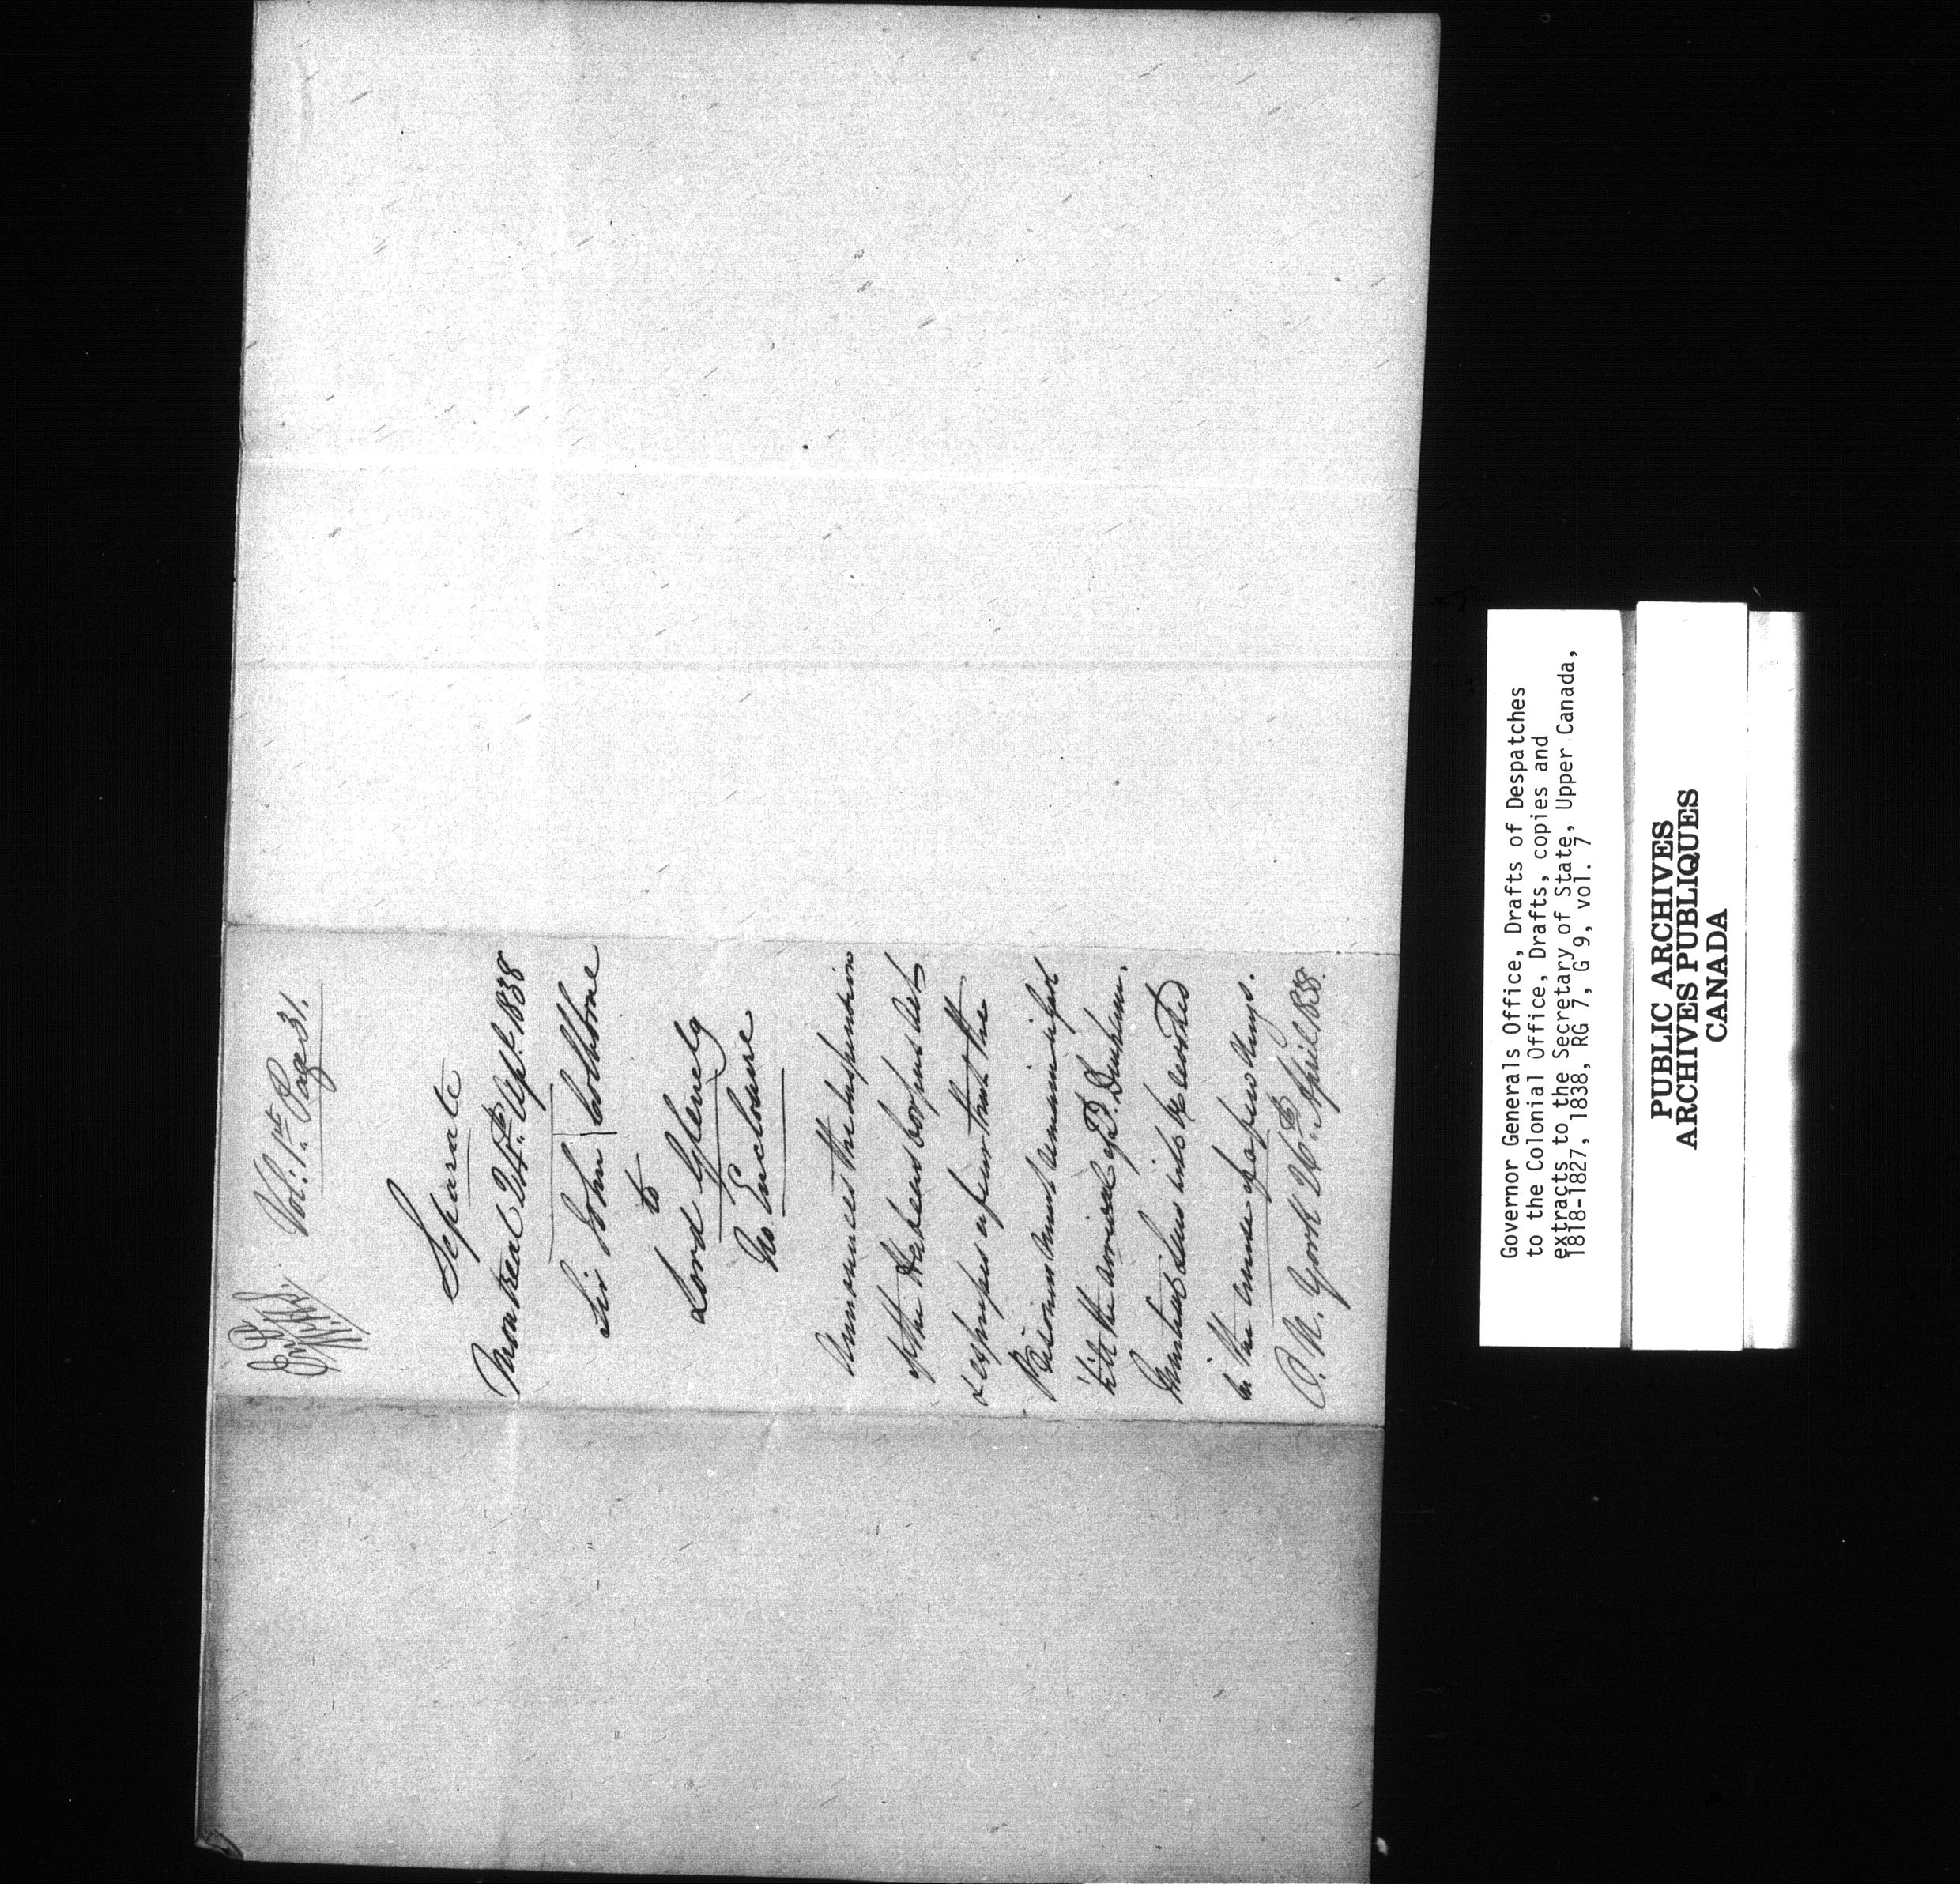 Vol: 1st. Page 31.
Separate
Montreal 24th. Apl. 1838
Sir John Colborne
to
Lord Glenelg
No. Enclosure
Announces the suspension
of the Habeas Corpus Act
& expresses a fear that the
Prisoners must remain
till the arrival of Ld. Durham.
Martial Law into be
in the course of a few days.
P. N. York 26th. April 1838.
Governor Generals Office, Drafts of Despatches
to the Colonial Office, Drafts, copies and
extracts to the Secretary of State, Upper Canada,
1818-1827, 1838, RG 7, G 9, vol. 7
PUBLIC ARCHIVES
ARCHIVES PUBLIQUES
CANADA